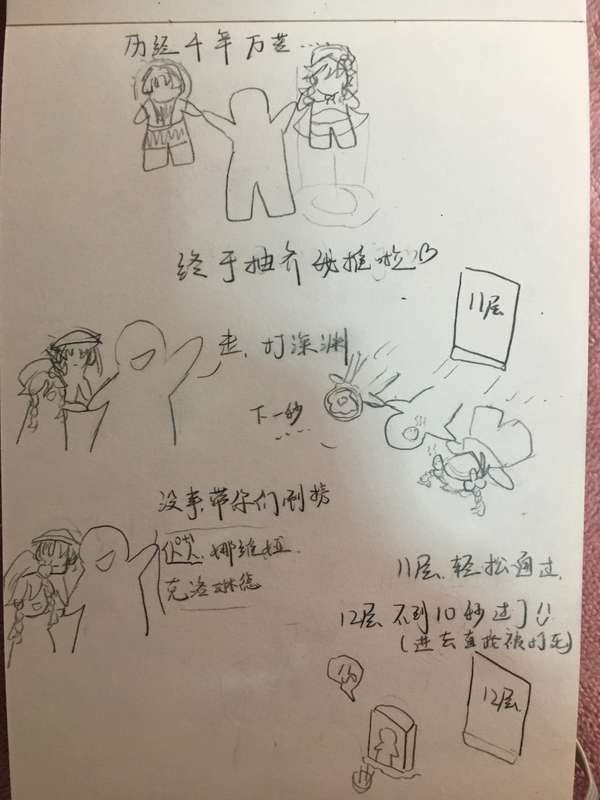 历经千年万苦…
终于抽齐双推啦
11层
走，打深渊
下一秒
没事，带你们刷榜
伏，娜维娅
克洛琳德
11层，轻松通过，
12层不到10秒过了!!
(进去直接被打死)
12层